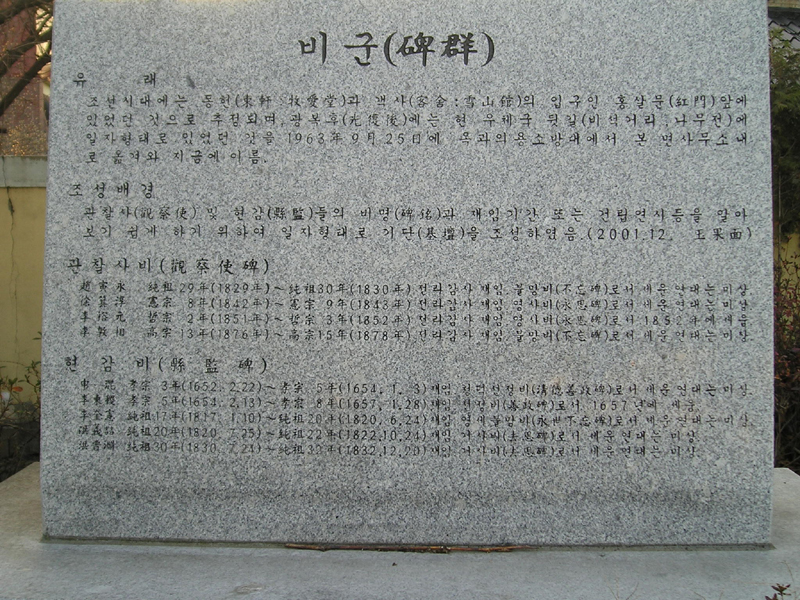 비군(碑群)
유 래
조선시대에는 동헌(東軒:牧愛堂)과 객사(客舍:雪山館)의 입구인 홍살문(紅門)앞에
있었던 것으로 추정되며, 광복후(光復後)에는 현 우체국 뒷길(비석거리, 나무전)에
일자형태로 있었던 것을 1963年 9月 25日에 옥과의용소방대에서 본 면사무소내
로 옮겨와 지금에 이름.
조성배경
관찰사(觀察使) 및 현감(縣監)들의 비명(碑銘)과 재임기간 또는 건립연사등을 알아
보기 쉽게 하기 위하여 일자형태로 기단(基壇)을 조성하였음.(2001.12. 玉果面)
관찰사비(觀察使碑)
趙寅永 純祖29年(1829年)~純祖30年(1830年) 전라감사 재임 불망비(不忘碑)로서 세운 연대는 미상
徐箕淳 憲宗 8年(1842年)~憲宗 9年(1843年) 전라감사 재임 영사비(永思碑)로서 세운 연대는 미상
李 元 哲宗 2年(1851年)~哲宗 3年(1852年) 전라감사 재임 영사비(永思碑)로서 1852年에 세움
李敦相 高宗13年(1876年)~高宗15年(1878年) 전라감사 재임 불망비(不忘碑)로서 세운 연대는 미상
현 감 비(縣 監 碑)
申 混 孝宗 3年(1652, 2,22)~孝宗 5年(1654, 1, 3)재임 청덕선정비(淸德善政碑)로서 세운 연대는 미상
李 孝宗 5年(1654, 2,13)~孝宗 8年(1657, 1,28)재임 선정비(善政碑)로서 1657년에 세움
李 純祖17年(1817, 1,10)~純祖20年(1820, 6,24)재임 영세불망비(永世不忘碑)로서 세운 연대는 미상
洪 純祖20年(1820, 7,25)~純祖22年(1822,10,24)재임 거사비(去思碑)로서 세운 연대는 미상
洪 純祖30年(1830, 7,24)~純祖32年(1832,12,20)재임 거사비(去思碑)로서 세운 연대는 미상